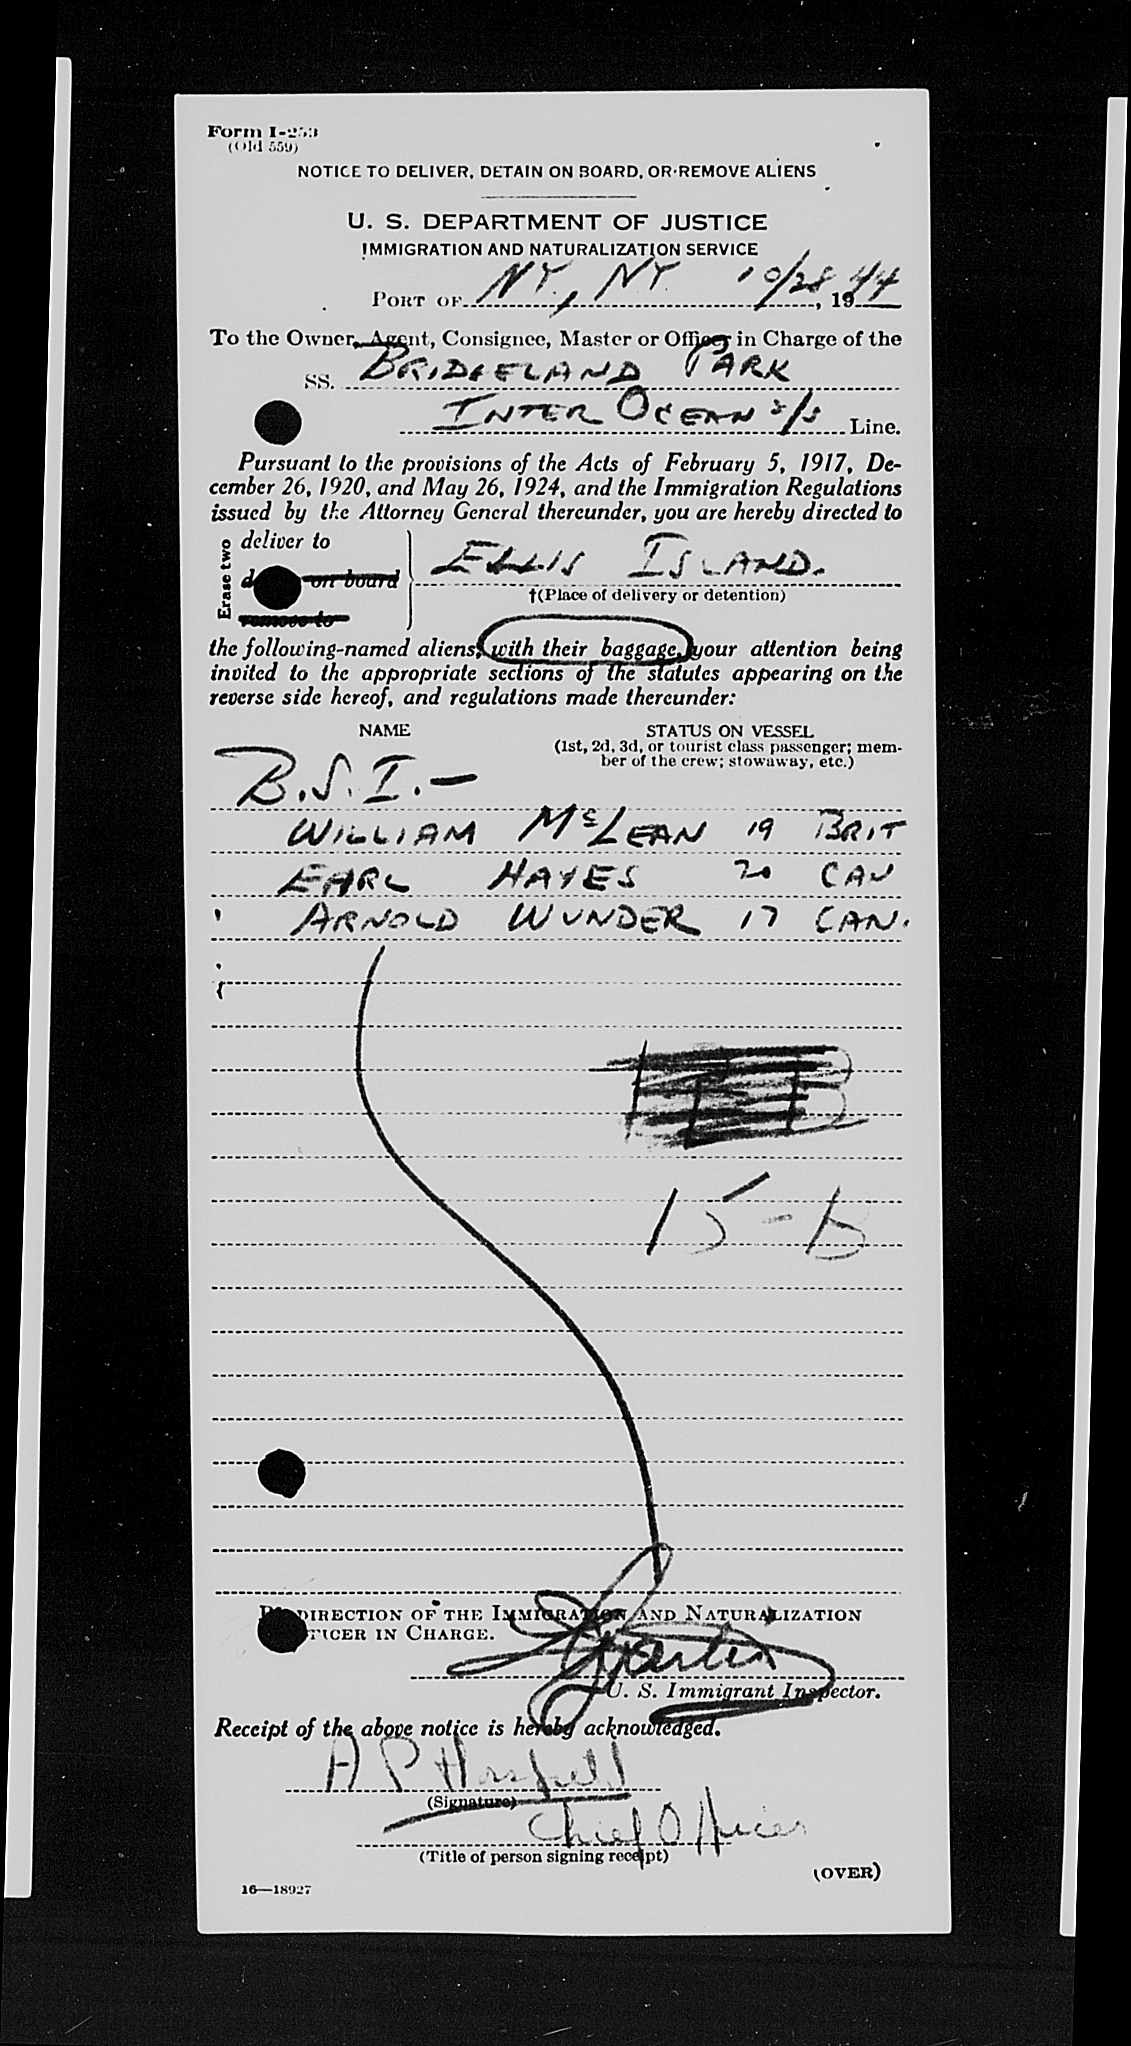 Form I-253
(Old 559)
NOTICE TO DELIVER, DETAIN ON BOARD, OR REMOVE ALIENS
U. S. DEPARTMENT OF JUSTICE
IMMIGRATION AND NATURALIZATION SERVICE
PORT OF NY, NY 10/28, 1944
To the Owner, Agent, Consignee, Master or Officer in Charge of the
SS. BRIDGELAND PARK
INTER OCEAN S/S Line.
Pursuant to the provisions of the Acts of February 5, 1917, De-
cember 26, 1920, and May 26, 1924, and the Immigration Regulations
issued by the Attorney General thereunder, you are hereby directed to
Erase two
deliver to
on board
remove to
ELLIS ISLAND.
†(Place of delivery or detention)
the following-named aliens, with their baggage, your attention being
invited to the appropriate sections of the statutes appearing on the
reverse side hereof, and regulations made thereunder:
NAME STATUS ON VESSEL
(1st, 2d, 3d, or tourist class passenger; mem-
ber of the crew; stowaway, etc.)
B.S.I.-
WILLIAM McLEAN 19 BRIT
EARL HAYES 20 CAN
ARNOLD WUNDER 17 CAN.
15-B
DIRECTION OF THE IMMIGRATION AND NATURALIZATION
FICER IN CHARGE.
U. S. Immigrant Inspector.
Receipt of the above notice is hereby acknowledged.
A P
(Signature)
Chief Officer
(Title of person signing receipt)
(OVER)
16—18927